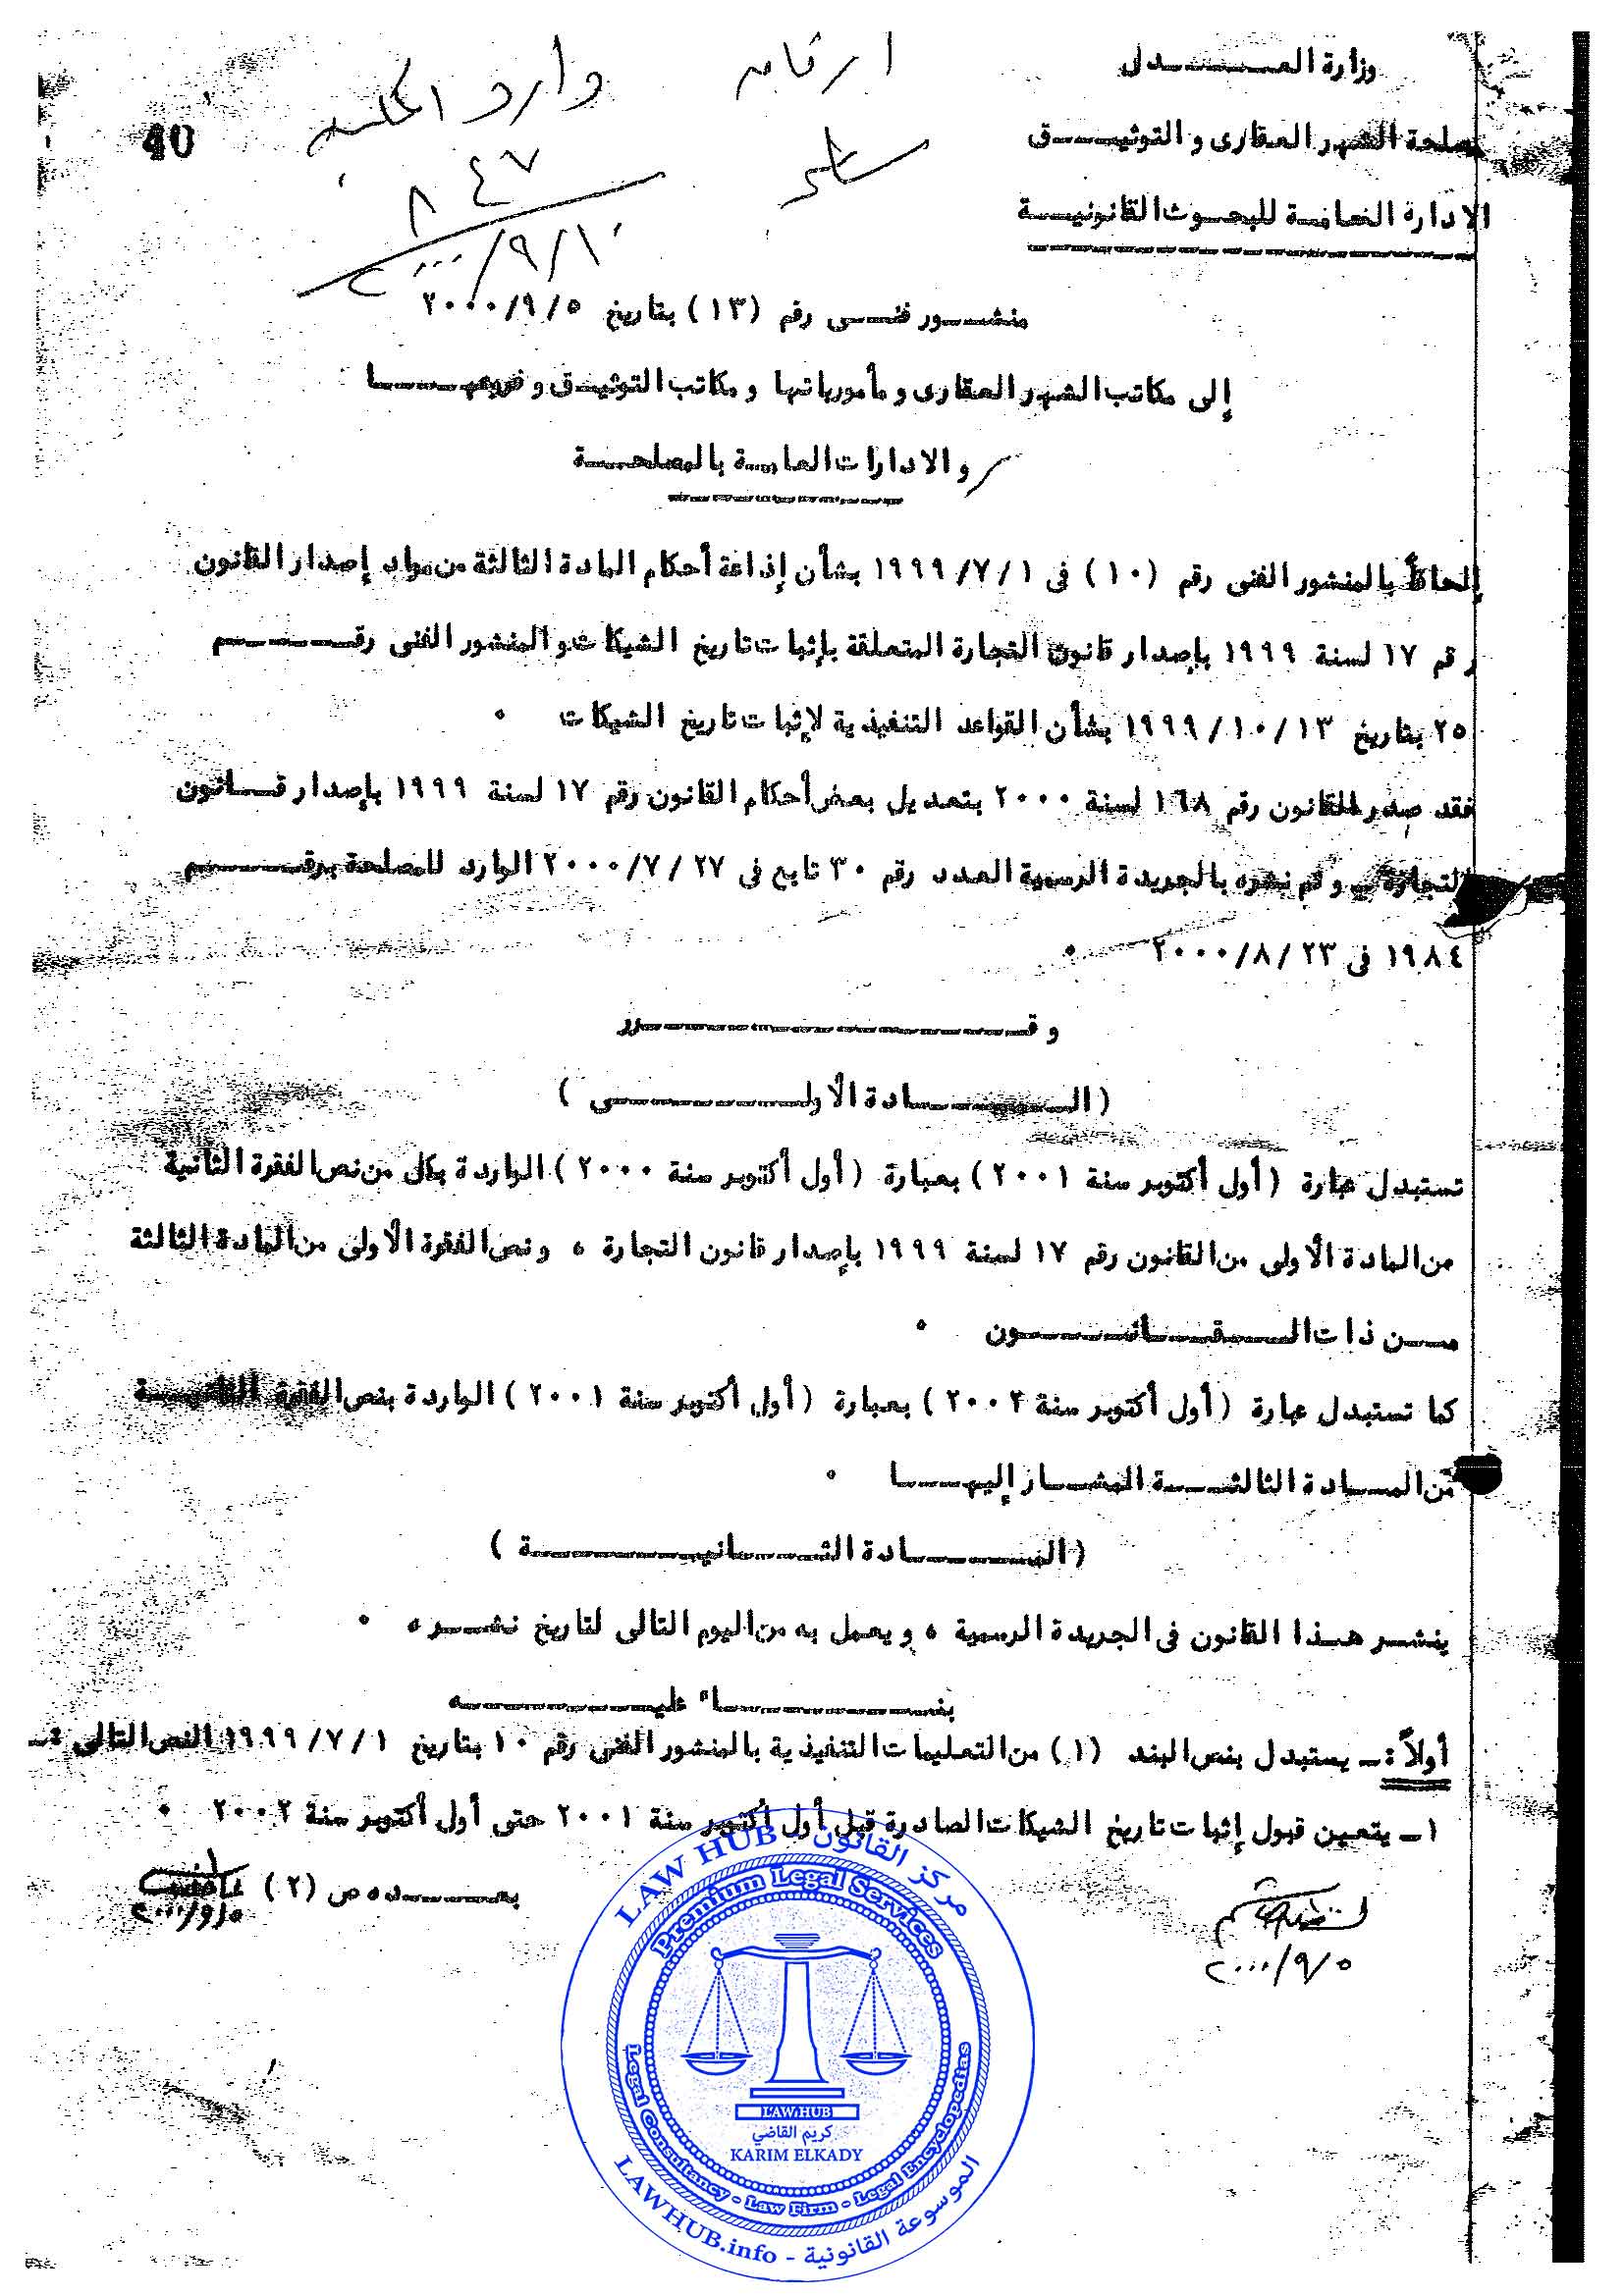 وزارة العــــــدل
مصلحة الشهر العقارى و التوثيــــق
الادارة العامـة للبحــوث القانونيــة
40
وارد
٨٤٧
٢٠٠٠/٩/١٠
منشـــور فنــى رقم (١٣) بتاريخ ٢٠٠٠/٩/٥
إلى مكاتب الشهر العقارى و مأمورياتها و مكاتب التوثيـق و فروعهـــــا
و الادارات العامـة بالمصلحــة
إلحاقاً بالمنشور الفنى رقم (١٠) فى ١٩٩٩/٧/١ بشأن إذاعة أحكام المادة الثالثة من مواد إصدار القانون
رقم ١٧ لسنة ١٩٩٩ بإصدار قانون التجارة المتعلقة بإثبات تاريخ الشيكات و المنشور الفنى رقــــــم
٢٥ بتاريخ ١٩٩٩/١٠/١٣ بشأن القواعد التنفيذية لإثبات تاريخ الشيكات ٠
فقد صدر القانون رقم ١٦٨ لسنة ٢٠٠٠ بتعديل بعض أحكام القانون رقم ١٧ لسنة ١٩٩٩ بإصدار قــانون
التجارة ـ و تم نشره بالجريدة الرسمية العدد رقم ٣٠ تابع فى ٢٠٠٠/٧/٢٧ الوارد للمصلحة برقــــــم
١٩٨٤ فى ٢٠٠٠/٨/٢٣ ٠
و قــــــــــــــــــرر
(المـــــــادة الأولـــــــــى )
تستبدل عبارة (أول أكتوبر سنة ٢٠٠١) بعبارة (أول أكتوبر سنة ٢٠٠٠) الواردة بكل من نص الفقرة الثانية
من المادة الأولى من القانون رقم ١٧ لسنة ١٩٩٩ بإصدار قانون التجارة ، و نص الفقرة الأولى من المادة الثالثة
مــن ذات الـــقـــانـــــون ٠
كما تستبدل عبارة (أول أكتوبر سنة ٢٠٠٢) بعبارة (أول أكتوبر سنة ٢٠٠١) الواردة بنص الفقرة الثانيــة
من المــادة الثالثــة المشــار إليهــــا ٠
(المـــــــادة الثــــانيـــــــــة )
ينشــر هــذا القانون فى الجريدة الرسمية ، و يعمل به من اليوم التالى لتاريخ نشــره ٠
بنــــــــــاء عليــــــــه
أولاً :ـ يستبدل بنص البند (١) من التعليمات التنفيذية بالمنشور الفنى رقم ١٠ بتاريخ ١٩٩٩/٧/١ النص التالى :ـ
١ـ يتعين قبول إثبات تاريخ الشيكات الصادرة قبل أول أكتوبر سنة ٢٠٠١ حتى أول أكتوبر سنة ٢٠٠٢ ٠
بعـــــده ص (٢)
٢٠٠٠/٩/٥
٢٠٠٠/٩/٥
LAW HUB - مركز القانون
Premium Legal Services
LAW HUB
كريم القاضي
KARIM ELKADY
Legal Consultancy - Law Firm - Legal Encyclopedias
LAWHUB.info - الموسوعة القانونية